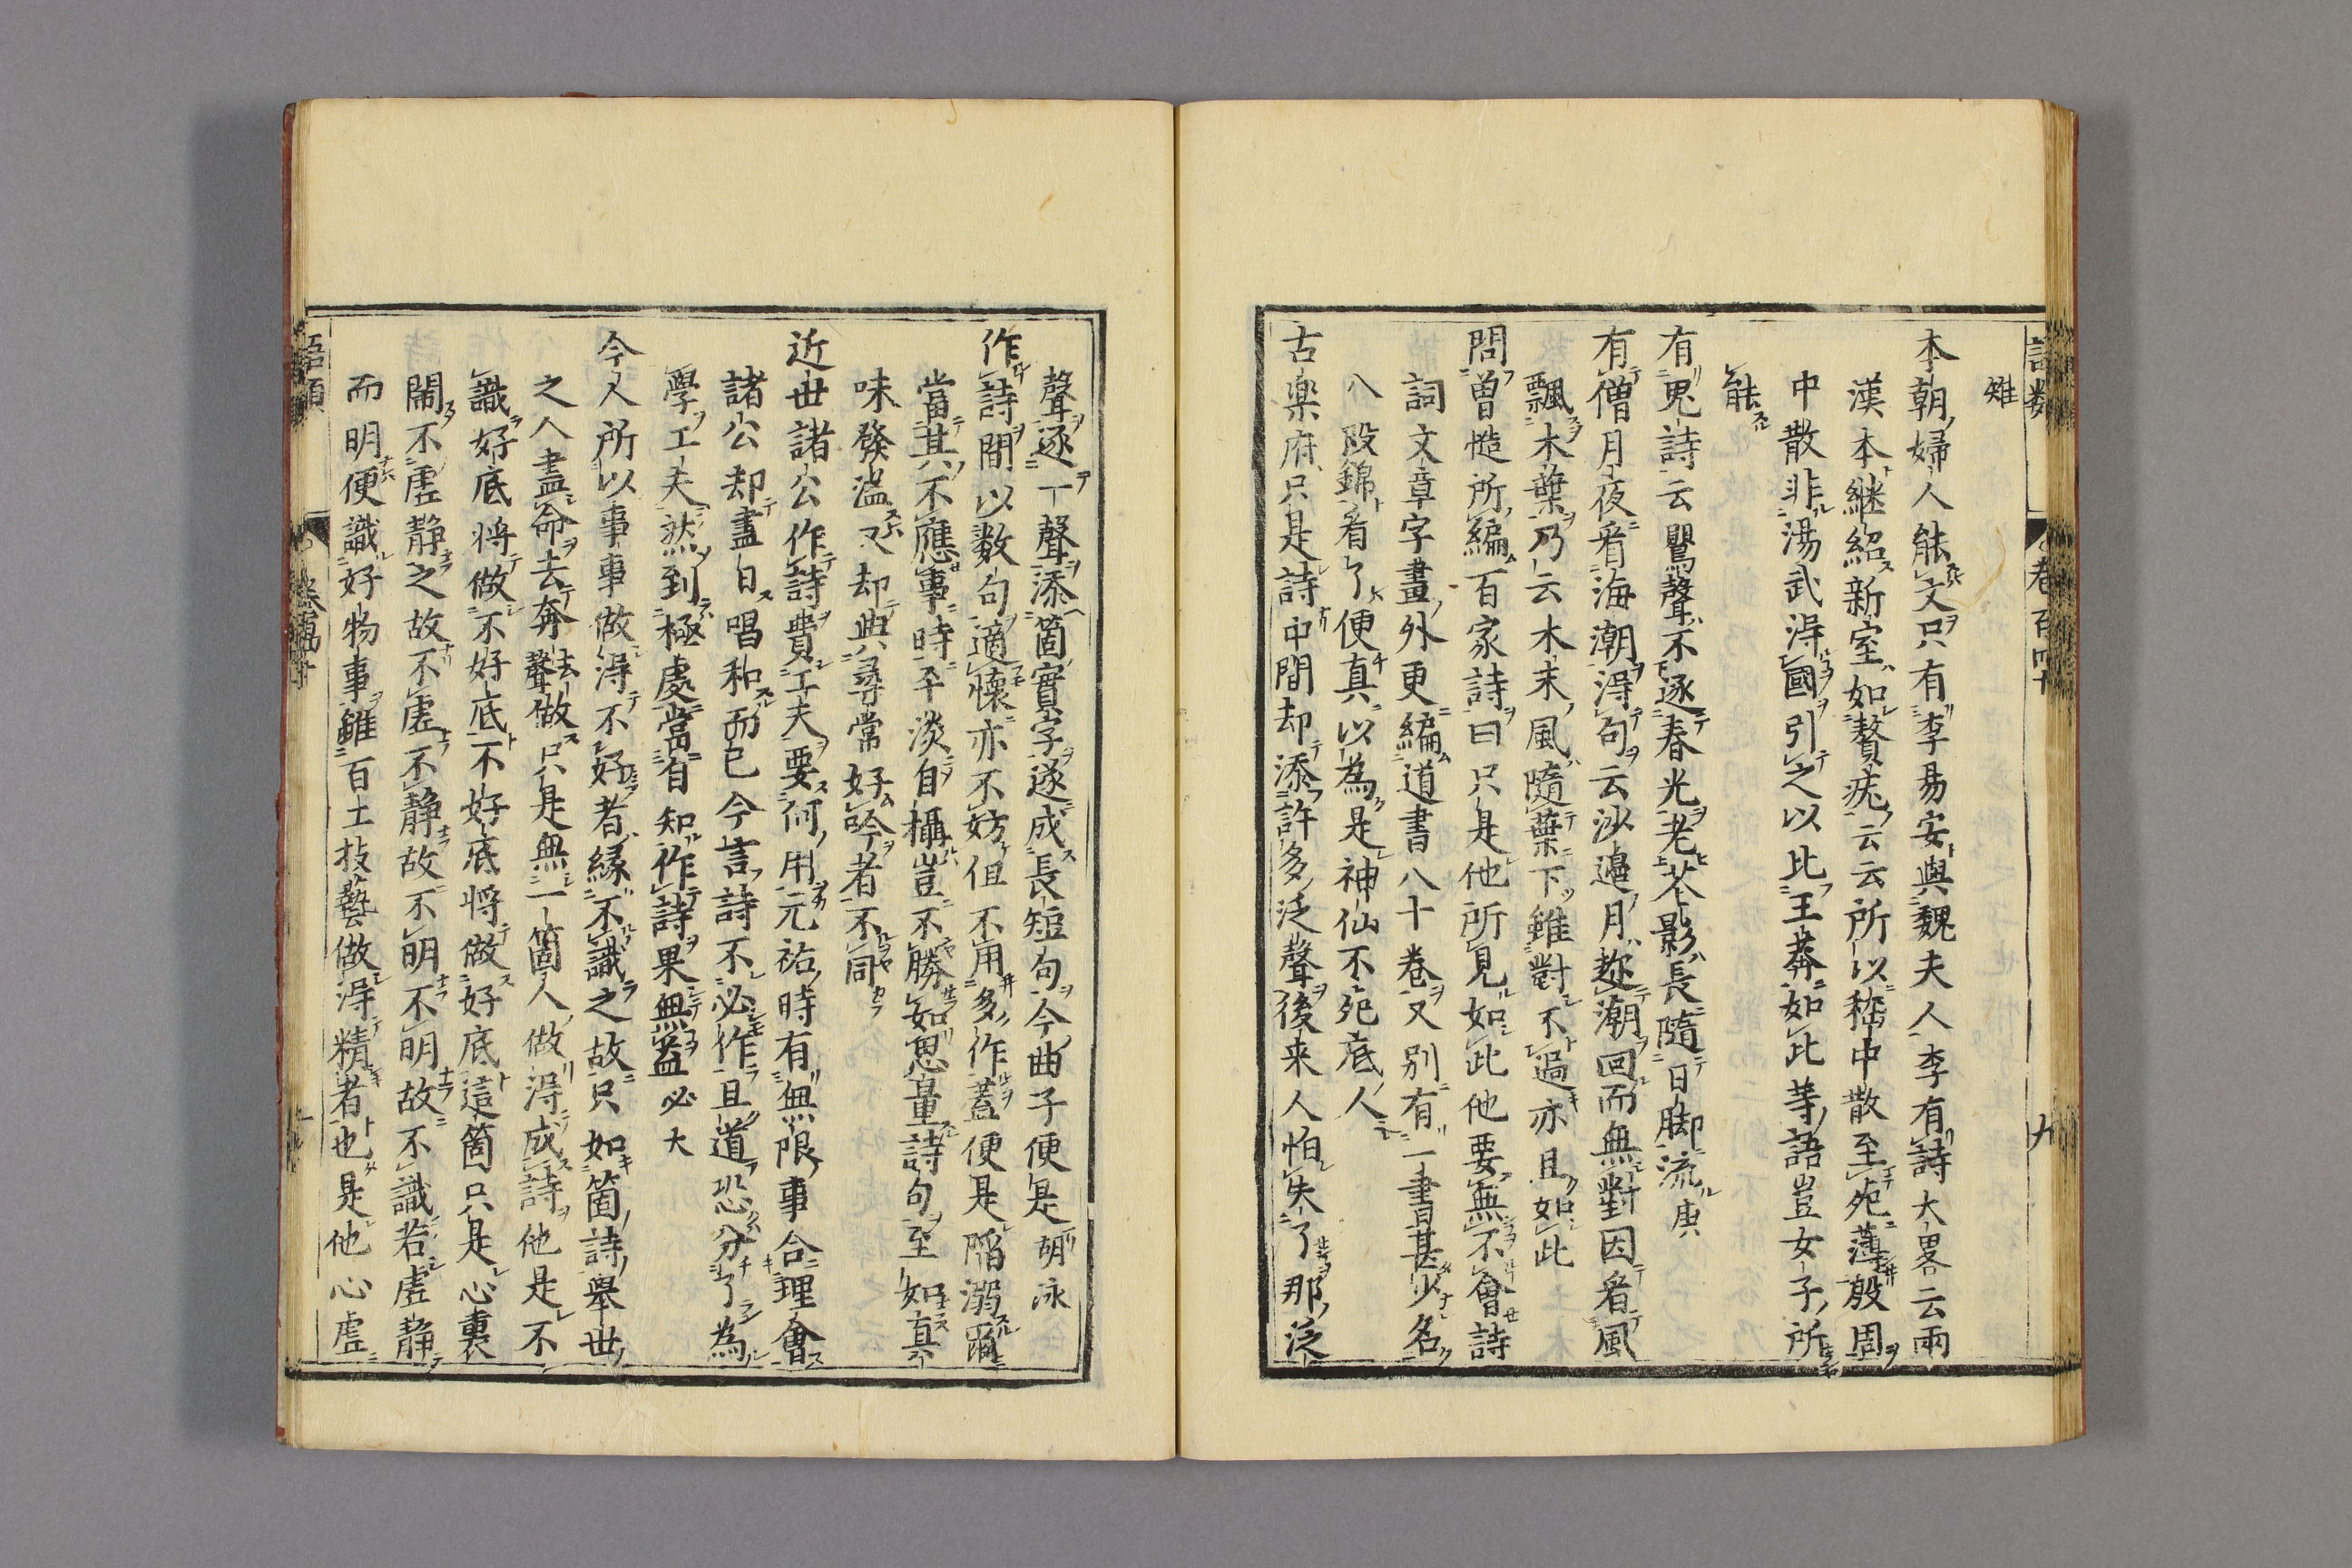 語類 卷百四十 九
雉
本朝婦人能文只有李易安與魏夫人李有詩大畧云兩
漢本継紹新室如贅疣云云所以嵇中散至死薄殷周
中散非湯武淂國引之以比王莽如此等語豈女子所
能
有鬼詩云鸎聲不逐春光老花影長隨日脚流 庚
有僧月夜看海潮淂句云沙邉月趂潮回而無對因看風
飄木葉乃云木末風隨葉下雖對不過亦且如此
問曽慥所編百家詩曰只是他所見如此他要無不㑹詩
詞文章字畫外更編道書八十卷又别有一書甚少名
八段錦看了便真以為是神仙不死底人
古楽府只是詩中間却添許多泛聲後来人怕失了那泛
聲逐一聲添箇實字遂成長短句今曲子便是 胡泳
作詩間以数句適懷亦不妨但不用多作蓋便是陥溺爾
當其不應事時平淡自攝豈不勝如思量詩句至如真
味發溢又却與尋常好吟者不同
近世諸公作詩費工夫要何用元祐時有無限事合理㑹
諸公却盡日唱和而已今言詩不必作且道恐分了為
學工夫然到極處當自知作詩果無益 必大
今人所以事事做淂不好者縁不識之故只如箇詩舉世
之人盡命去奔去聲做只是無一箇人做淂成詩他是不
識好底将做不好底不好底将做好底這箇只是心裏
閙不虚静之故不虚不静故不明不明故不識若虚静
而明便識好物事雖百工技藝做淂精者也是他心虚
語類